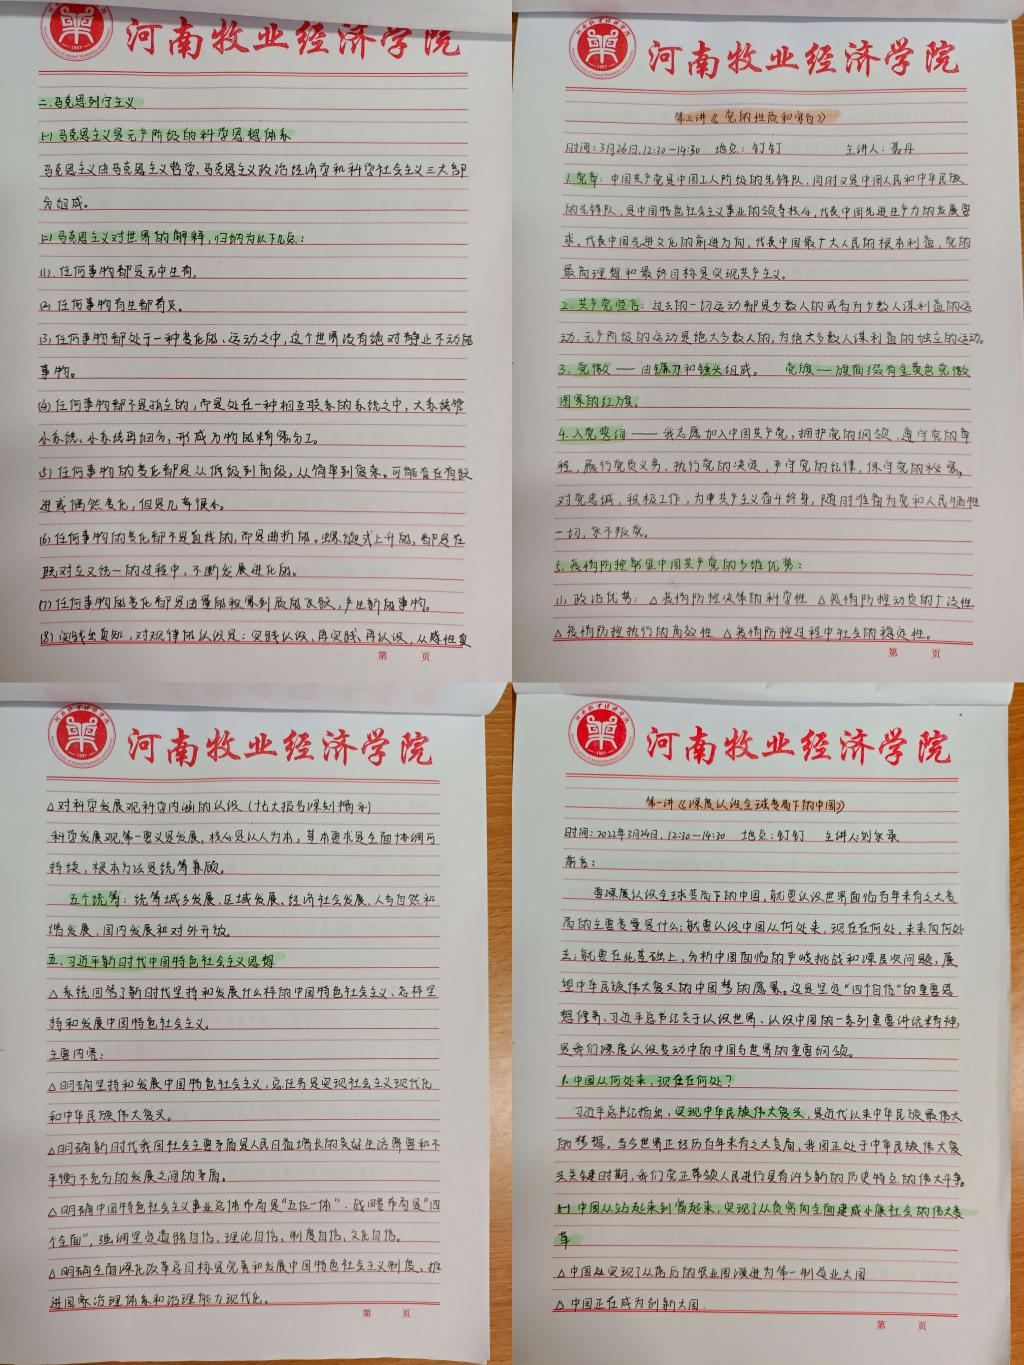 河南牧业经济学院
二.马克思列宁主义
(一)马克思主义是无产阶级的科学思想体系
马克思主义由马克思主义哲学、马克思主义政治经济学和科学社会主义三大部
分组成。
(二)马克思主义对世界的解释,归纳为以下几点:
(1).任何事物都是无中生有。
(2).任何事物有生都有灭。
(3).任何事物都处于一种变化的、运动之中,这个世界没有绝对静止不动的
事物。
(4)任何事物都不是孤立的,而是处在一种相互联系的系统之中,大系统管
小系统、小系统再细分,形成万物的精密分工。
(5)任何事物的变化都是从低级到高级,从简单到复杂。可能存在有跃
进或偶然变化,但是几率很小。
(6)任何事物的变化都不是直线的,而是曲折的。螺旋式上升的,都是在
既对立又统一的过程中,不断发展进化的。
(7)任何事物的变化都是由量的积累到质的飞跃,产生新的事物。
(8)实践出真知,对规律的认识是:实践认识、再实践、再认识,从感性直
第 页
河南牧业经济学院
第三讲《党的性质和宗旨》
时间:3月26日,12:30—14:30 地点:钉钉 主讲人:聂丹
1.党章:中国共产党是中国工人阶级的先锋队,同时又是中国人民和中华民族
的先锋队,是中国特色社会主义事业的领导核心,代表中国先进生产力的发展要
求、代表中国先进文化的前进方向,代表中国最广大人民的根本利益,党的
最高理想和最终目标是实现共产主义。
2.共产党宣言:过去的一切运动都是少数人的或者为少数人谋利益的运
动,无产阶级的运动是绝大多数人的,为绝大多数人谋利益的独立的运动。
3.党徽——由镰刀和锤头组成。 党旗——旗面缀有金黄色党徽
图案的红旗。
4.入党誓词——我志愿加入中国共产党,拥护党的纲领,遵守党的章
程,履行党员义务,执行党的决定,严守党的纪律,保守党的秘密,
对党忠诚,积极工作,为共产主义奋斗终身,随时准备为党和人民牺牲
一切,永不叛党。
5.疫情防控彰显中国共产党的多维优势:
(1)政治优势:△疫情防控决策的科学性 △疫情防控动员的广泛性
△疫情防控执行的高效性 △疫情防控过程中社会的稳定性。
第 页
河南牧业经济学院
△对科学发展观科学内涵的认识(十七大报告深刻揭示)
科学发展观,第一要义是发展,核心是以人为本,基本要求是全面协调可
持续,根本方法是统筹兼顾。
五个统筹:统筹城乡发展、区域发展、经济社会发展、人与自然和
谐发展、国内发展和对外开放。
五.习近平新时代中国特色社会主义思想
△系统回答了新时代坚持和发展什么样的中国特色社会主义、怎样坚
持和发展中国特色社会主义。
主要内容:
△明确坚持和发展中国特色社会主义,总任务是实现社会主义现代化
和中华民族伟大复兴。
△明确新时代我国社会主要矛盾是人民日益增长的美好生活需要和不
平衡不充分的发展之间的矛盾。
△明确中国特色社会主义事业总体布局是"五位一体"、战略布局是"四
个全面",强调坚定道路自信、理论自信、制度自信、文化自信。
△明确全面深化改革总目标是完善和发展中国特色社会主义制度、推
进国家治理体系和治理能力现代化。
第 页
河南牧业经济学院
第一讲《深度认识全球变局下的中国》
时间:2022年3月24日,12:30—14:30 地点:钉钉 主讲人:刘永录
前言:
要深度认识全球变局下的中国,就要认识世界面临百年未有之大变
局的主要变量是什么;就要认识中国从何处来,现在在何处,未来向何处
去;就要在此基础上,分析中国面临的严峻挑战和深层次问题,展
望中华民族伟大复兴的中国梦的愿景。这是坚定"四个自信"的重要思
想修养,习近平总书记关于认识世界、认识中国的一系列重要讲话精神,
是我们深度认识变动中的中国与世界的重要纲领。
1.中国从何处来,现在在何处?
习近平总书记指出,实现中华民族伟大复兴,是近代以来中华民族最伟大
的梦想。当今世界正经历百年未有之大变局,我国正处于中华民族伟大复
兴关键时期,我们党正带领人民进行具有许多新的历史特点的伟大斗争。
(一)中国从站起来到富起来,实现了从贫穷向全面建成小康社会的伟大变
革
△中国处实现了从落后的农业国演进为第一制造业大国
△中国正在成为创新大国.
第 页